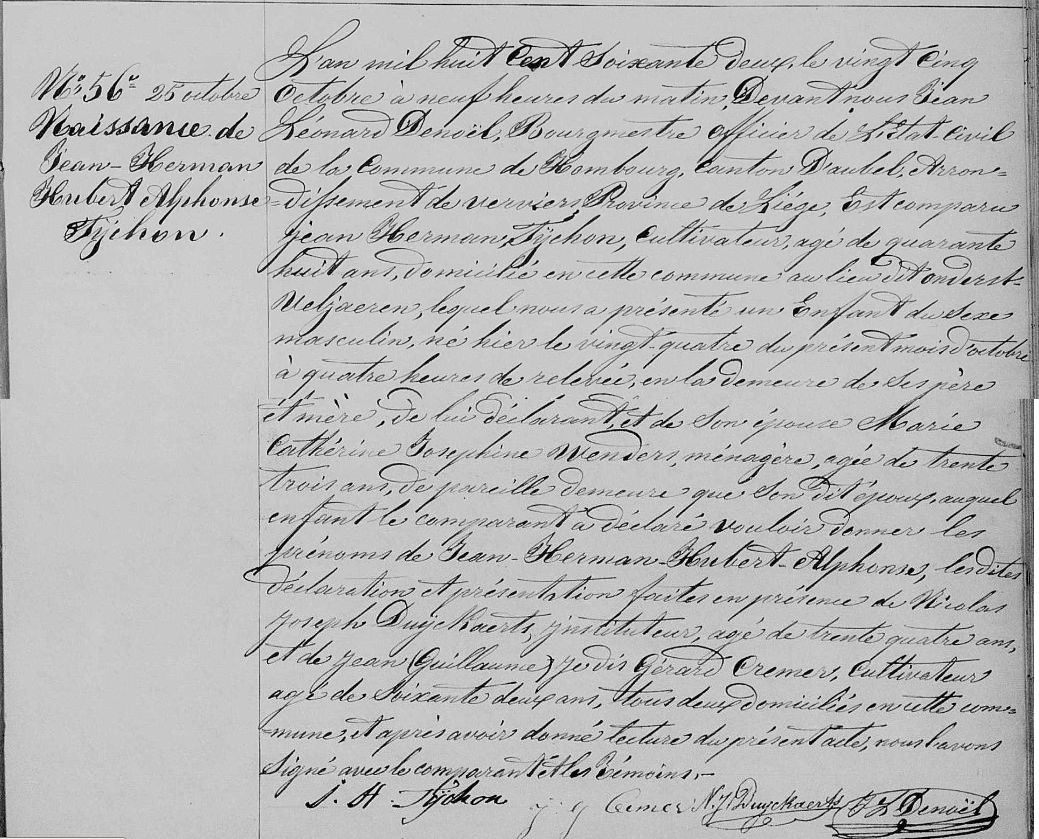 N° 56e 25 octobre
Naissance de
Jean-Herman
Hubert Alphonse
Tÿchon.
L'an mil huit Cent Soixante deux, le vingt Cinq
Octobre à neuf heures du matin, Devant nous Jean
Léonard Denoël, Bourgmestre officier de L'Etat Civil
de la Commune de Hombourg, Canton D'aubel, Arron=
=dissement de verviers, Province de Liége, Est comparu
Jean Herman, Tÿchon, Cultivateur, agé de quarante
huit ans, domicilié en cette commune au lieu dit onderst-
Veljaeren, lequel nous a présenté un Enfant du Sexe
masculin, né hier le vingt-quatre du présent mois d'octobre
à quatre heures de relevée, en la demeure de Ses père
et mère, de lui déclarant, et de Son épouse Marie
Cathérine Josephine Wenders, ménagère, agée de trente
trois ans, de pareille demeure que Son dit époux, auquel
enfant le comparant a déclaré vouloir donner les
prénoms de Jean-Herman-Hubert-Alphonse, les dites
déclaration et présentation faites en présence de Nicolas
Joseph Duÿckaerts, jnstituteur, agé de trente quatre ans,
et de Jean (Guillaume) je dis Gérard Cremer, Cultivateur
agé de Soixante deux ans, tous deux domiciliés en cette com=
=mune, et après avoir donné lecture du présent acte, nous l'avons
Signé avec le comparant et les Témoins.-
J. H. Tÿchon j g Cremer N. J. Duyckaerts J L Denoël